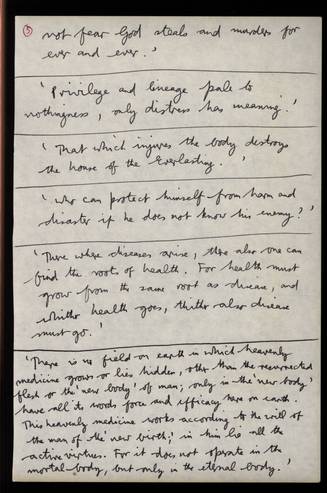 ③ not fear God steals and murders for
ever and ever.'
'Privilege and lineage pale to
nothingness, only distress has meaning.'
'That which injures the body destroys
the house of the Everlasting.'
'Who can protect himself from harm and
disaster if he does not know his enemy?'
'There where diseases arise, there also one can
find the roots of health. For health must
grow from the same root as disease, and
whither health goes, thither also disease
must go.'
'There is no field on earth in which heavenly
medicine grows or lies hidden, other than the resurrected
flesh or the 'new body' of man; only in the 'new body'
have all its words force and efficacy here on earth.
This heavenly medicine works according to the will of
the man of the 'new birth;' in him lie all the
active virtues. For it does not operate in the
mortal body, but only in the eternal body.'